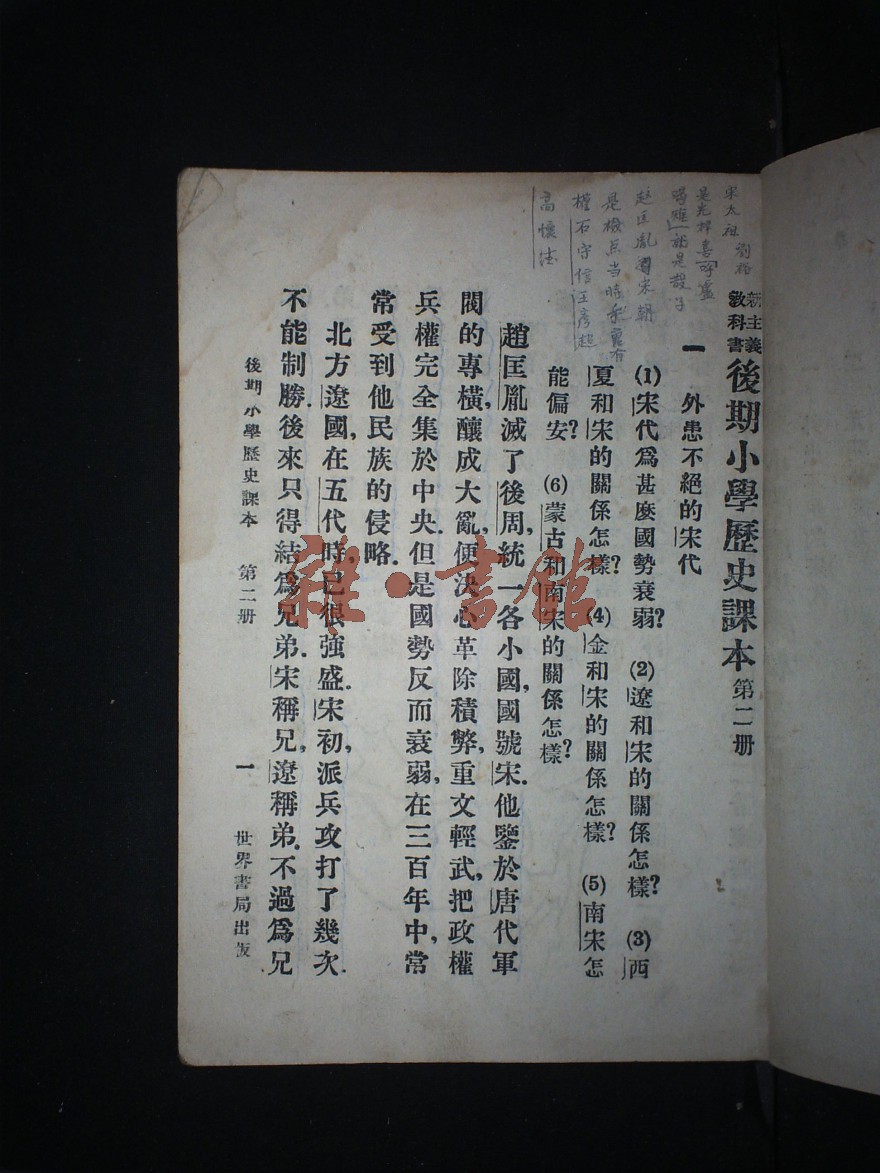 宋太祖 劉裕
是光桿喜「呼盧
喝雉」就是骰子
趙匡胤得宋朝
是檢點当時
權石守信王彦超
高懷德
新主義教科書後期小學歷史課本第二册
一 外患不絕的宋代
(1)宋代爲甚麽國勢衰弱? (2)遼和宋的關係怎樣? (3)西
夏和宋的關係怎樣? (4)金和宋的關係怎樣? (5)南宋怎
能偏安? (6)蒙古和南宋的關係怎樣?
趙匡胤滅了後周,統一各小國,國號宋.他鑒於唐代軍
閥的專橫,釀成大亂,便決心革除積弊,重文輕武,把政權
兵權完全集於中央.但是國勢反而衰弱,在三百年中,常
常受到他民族的侵略.
北方遼國,在五代時,已很強盛.宋初,派兵攻打了幾次.
不能制勝.後來只得結爲兄弟.宋稱兄,遼稱弟.不過爲兄
後期小學歷史課本 第二册 一 世界書局出版
雜·書館